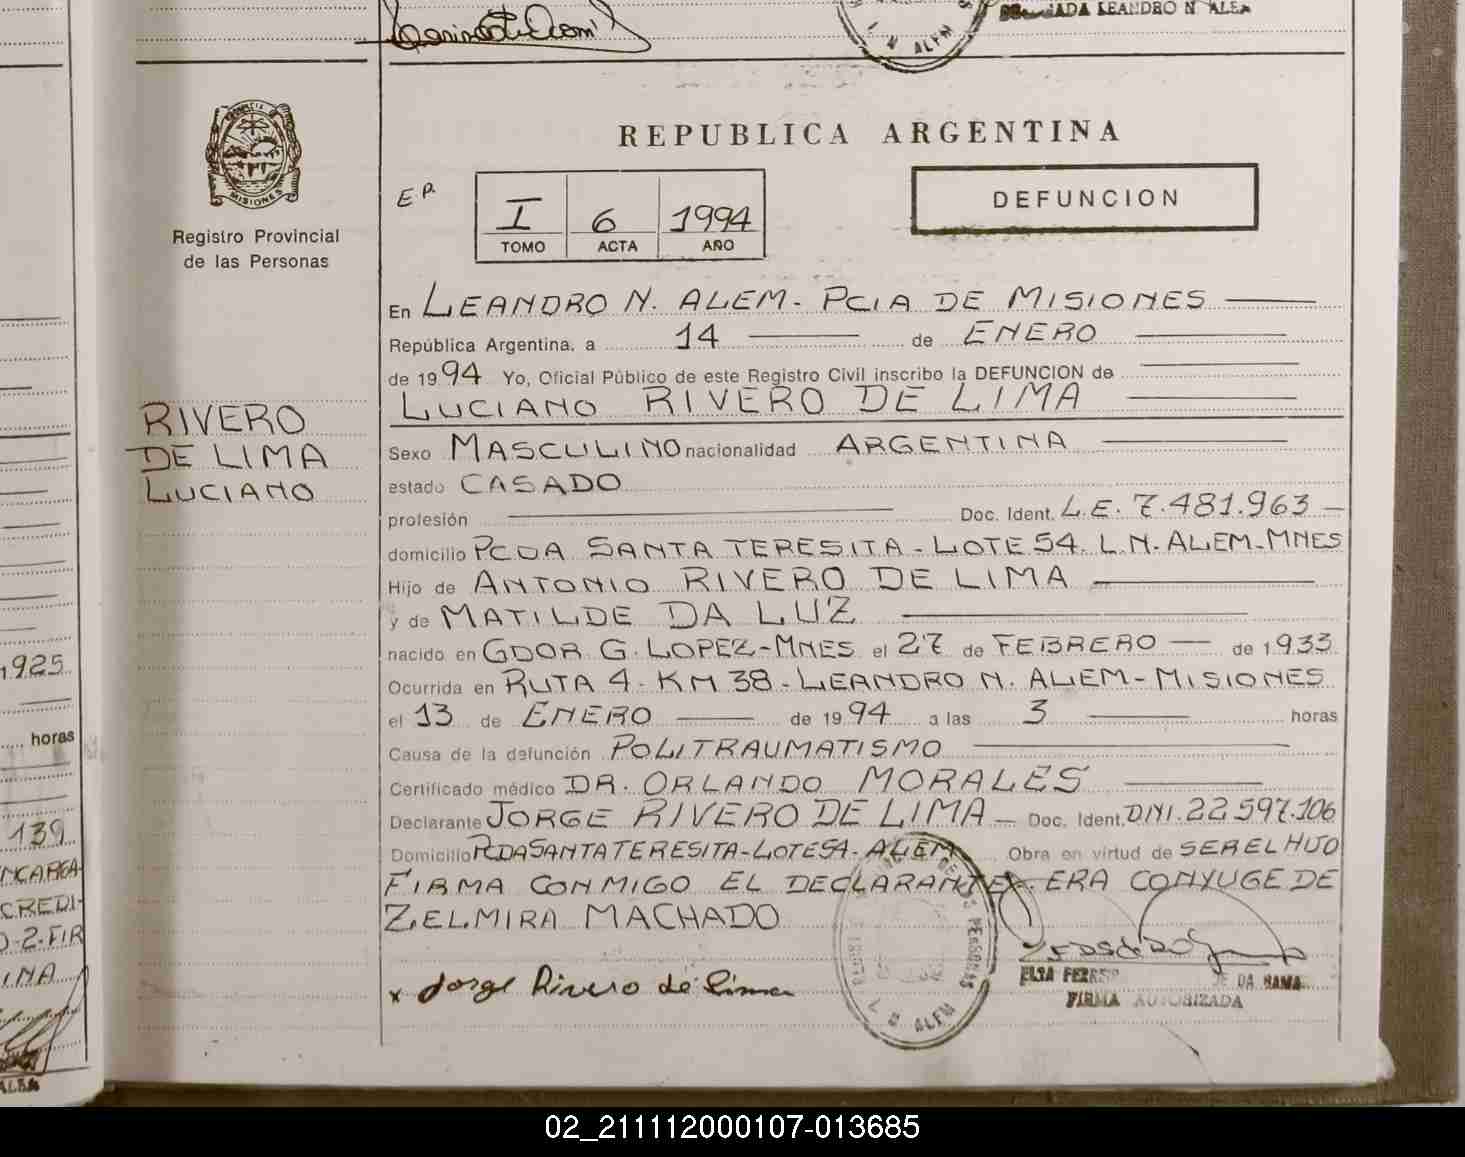 LEANDRO N. ALEM
L N ALEM
MISIONES
Registro Provincial
de las Personas
RIVERO
DE LIMA
LUCIANO
REPUBLICA ARGENTINA
E.P.
I 6 1994
TOMO ACTA AÑO
DEFUNCION
En LEANDRO N. ALEM - PCIA DE MISIONES
República Argentina, a 14 de ENERO
de 1994 Yo, Oficial Público de este Registro Civil inscribo la DEFUNCION de
LUCIANO RIVERO DE LIMA
Sexo MASCULINO nacionalidad ARGENTINA
estado CASADO
profesión Doc. Ident. L.E. 7.481.963
domicilio PCDA SANTA TERESITA - LOTE 54. L.N. ALEM - MNES
Hijo de ANTONIO RIVERO DE LIMA
y de MATILDE DA LUZ
nacido en GDOR G. LOPEZ - MNES el 27 de FEBRERO de 1933
Ocurrida en RUTA 4 - KM 38 - LEANDRO N. ALEM - MISIONES
el 13 de ENERO de 1994 a las 3 horas
Causa de la defunción POLITRAUMATISMO
Certificado médico DR. ORLANDO MORALES
Declarante JORGE RIVERO DE LIMA Doc. Ident. DNI. 22.597.106
Domicilio PCDA SANTA TERESITA - LOTE 54 - ALEM Obra en virtud de SER EL HIJO
FIRMA CONMIGO EL DECLARANTE. ERA CONYUGE DE
ZELMIRA MACHADO
x Jorge Rivero de Lima
L N ALEM
DE DA GAMA
FIRMA AUTORIZADA
1925
horas
139
NCARGA-
CREDI-
-2-FIR
INA
ALEM
02_211112000107-013685